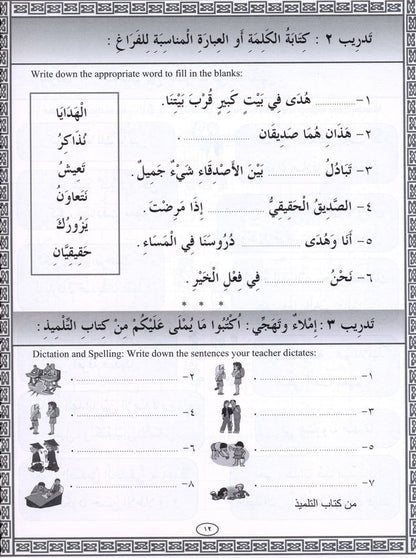 تَدرِيب ٢ : كِتابَةُ الكَلِمَةِ أَو العِبارَةِ المْناسِبَةِ لِلفَراغِ :
Write down the appropriate word to fill in the blanks:
١- ............ هُدَى فِي بَيْتٍ كَبِيرٍ قُرْبَ بَيْتِنَا.
٢- هَذَانِ هُمَا صَدِيقَان ............ .
٣- تَبَادُلُ ............ بَيْنَ الأَصْدِقَاءِ شَيْءٌ جَمِيلٌ.
٤- الصَّدِيقُ الْحَقِيقِيُّ ............ إِذَا مَرِضْتَ.
٥- أَنَا وَهُدَى ............ دُرُوسَنَا فِي الْمَسَاءِ.
٦- نَحْنُ ............ فِي فِعْلِ الْخَيْرِ.
الْهَدَايَا
نُذَاكِرُ
تَعِيشُ
نَتَعاوَنُ
يَزُورُكَ
حَقِيقِيَّانِ
* * *
تَدرِيب ٣ : إِمْلاءٌ وَتَهَجِّي : اُكْتُبُوا مَا يُمْلَى عَلَيْكُمْ مِنْ كِتابِ التِّلْمِيذِ :
Dictation and Spelling: Write down the sentences your teacher dictates:
١- ............ .
٢- ............ .
٣- ............ .
٤- ............ .
٥- ............ .
٦- ............ .
٧- ............ .
٨- ............ .
من كتاب التلميذ
١٢